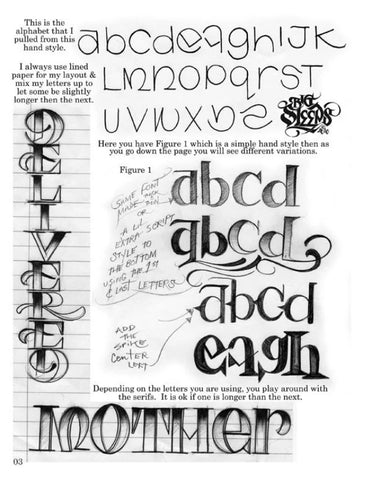 This is the
alphabet that I
pulled from this
hand style.
abcdeaghIJK
I always use lined
paper for my layout &
mix my letters up to
let some be slightly
longer then the next.
LMNOPqrST
UVWXYZ
BIG
SLEEPS
Here you have Figure 1 which is a simple hand style then as
you go down the page you will see different variations.
Figure 1
abcd
SOME FONT
MADE
OR
A LIL
EXTRA SCRIPT
STYLE TO
THE BOTTOM
USING THE 1st
& LAST LETTERS
abcd
abcd
ADD
THE
SPIKE
CENTER
LEFT
eagh
DELIVERED
Depending on the letters you are using, you play around with
the serifs. It is ok if one is longer than the next.
MOTHer
03